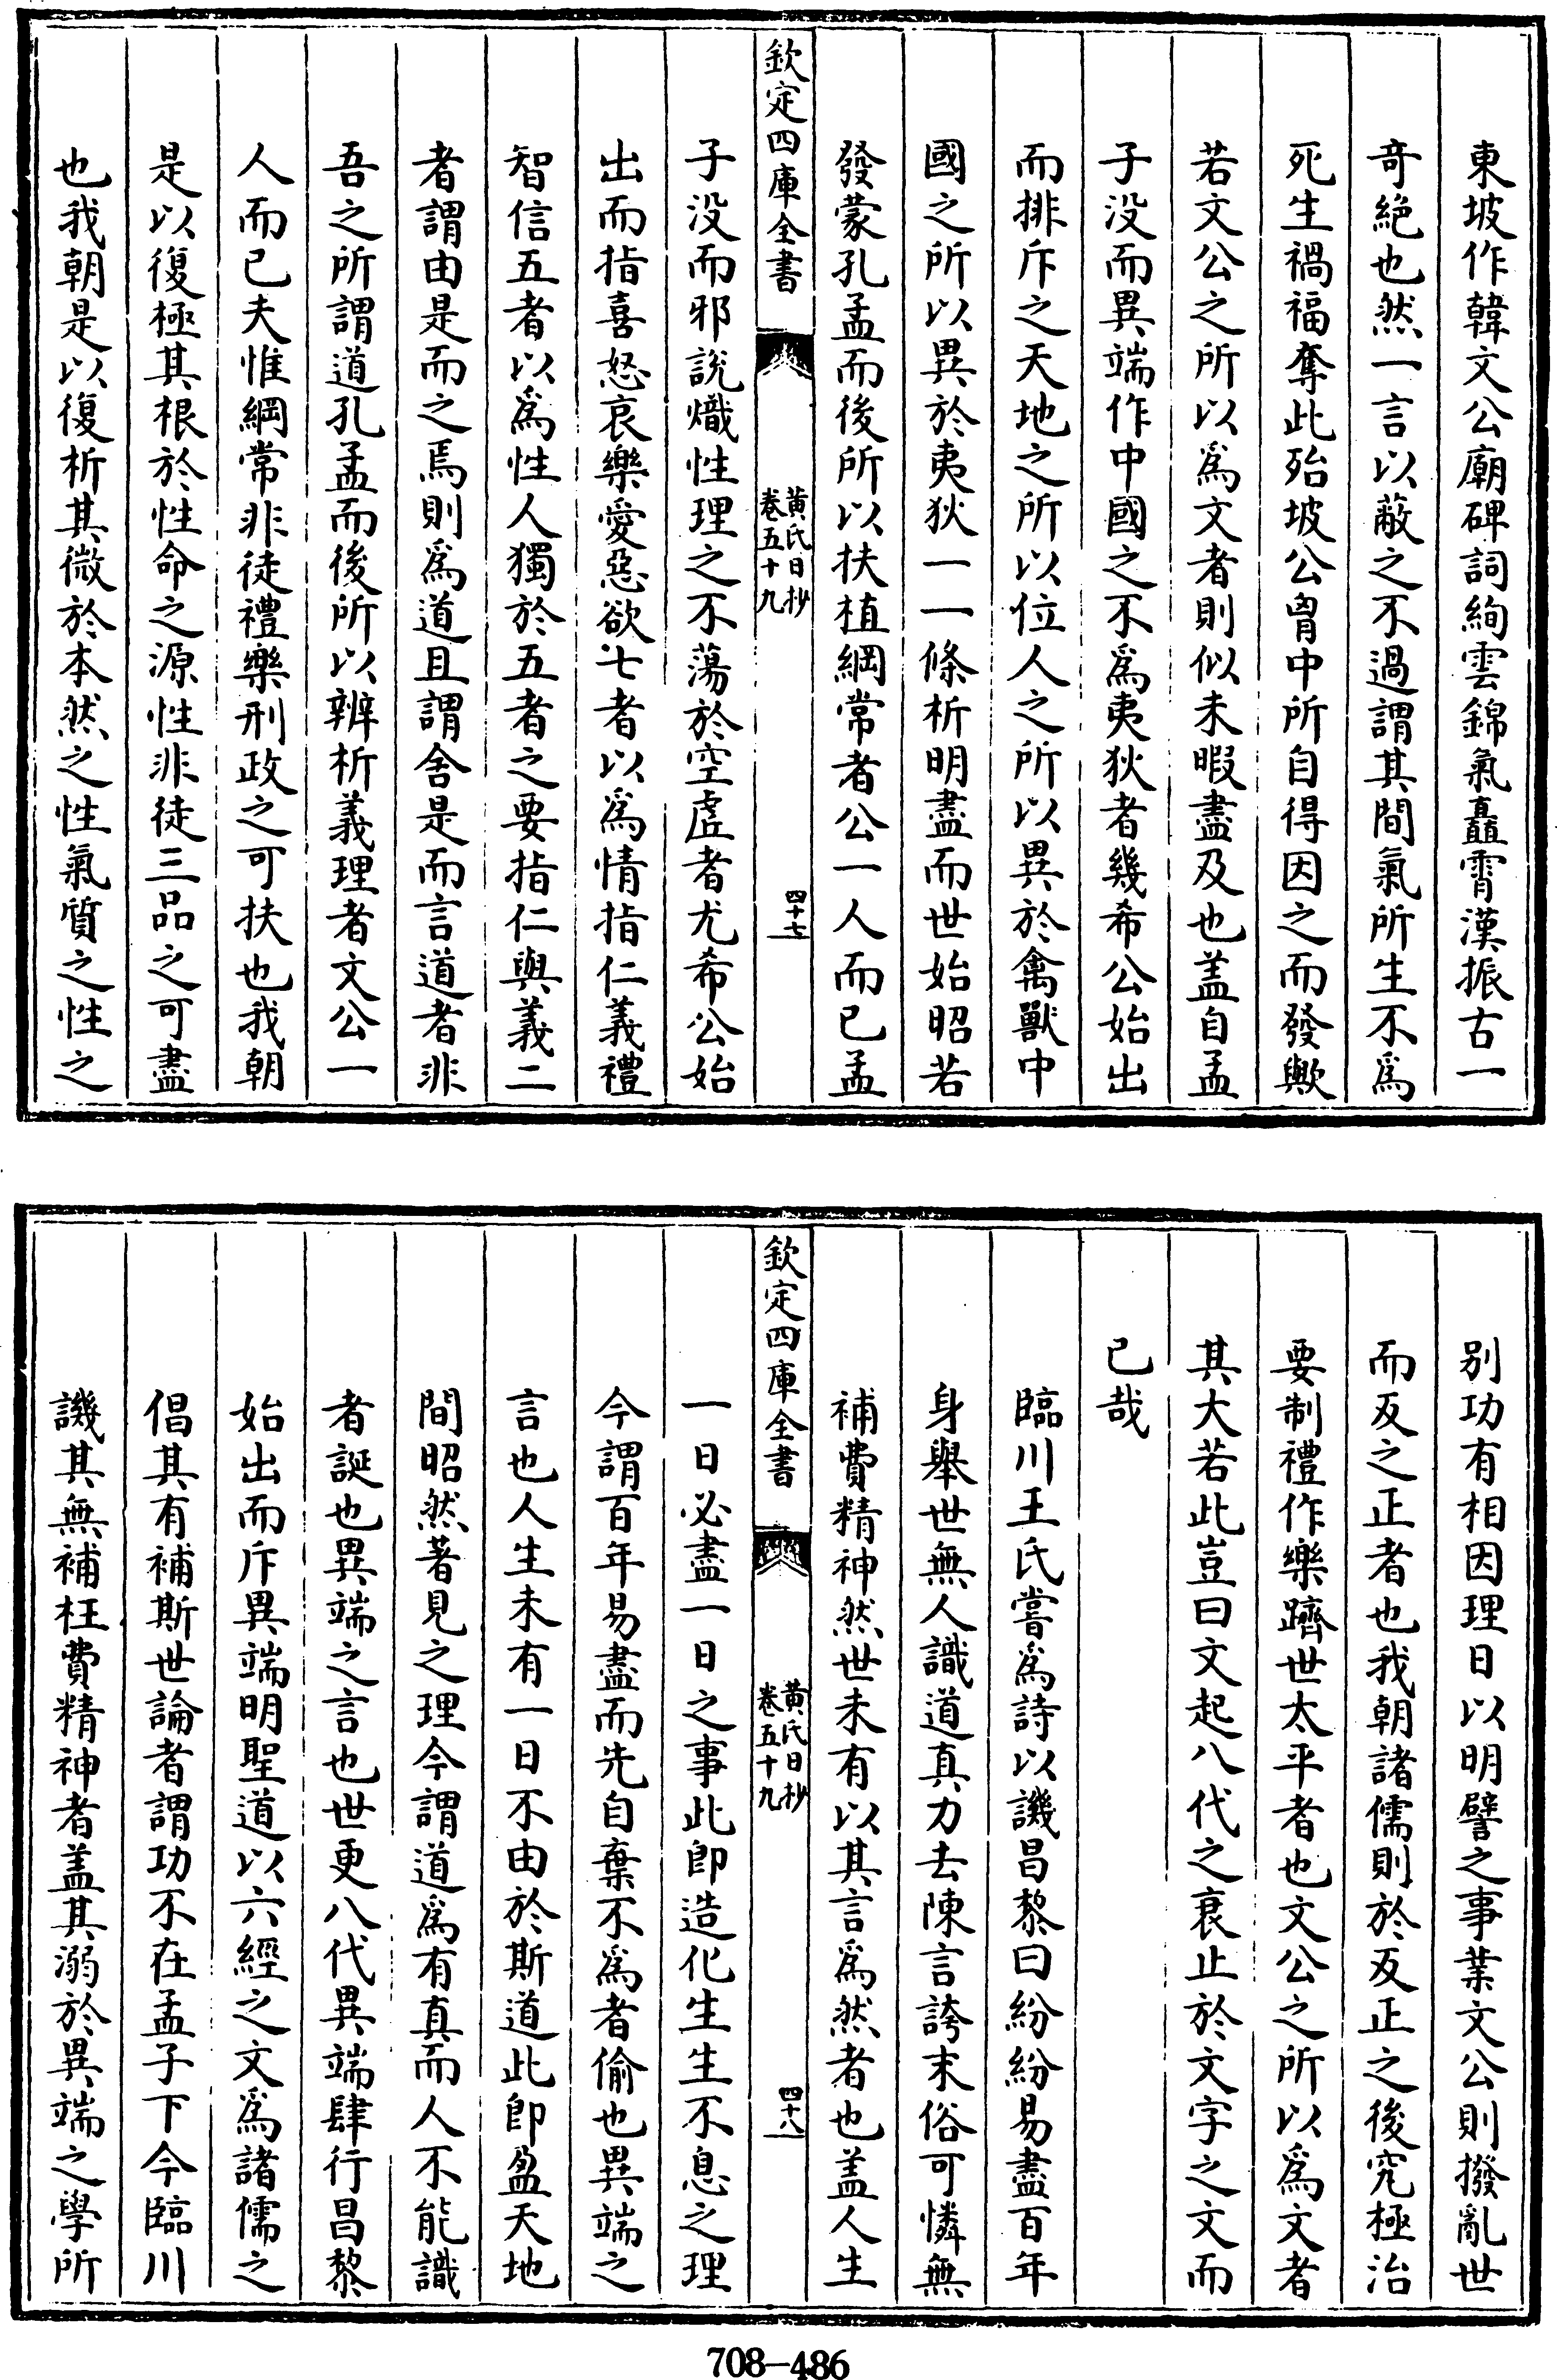 東坡作韓文公廟碑詞絢雲錦氣矗霄漢振古一
竒絶也然一言以蔽之不過謂其間氣所生不爲
死生禍福奪此殆坡公胷中所自得因之而發歟
若文公之所以爲文者則似未暇盡及也盖自孟
子没而異端作中國之不爲夷狄者幾希公始出
而排斥之天地之所以位人之所以異於禽獸中
國之所以異於夷狄一一條析明盡而世始昭若
發蒙孔孟而後所以扶植綱常者公一人而已孟
欽定四庫全書
黄氏日抄
卷五十九
四十七
子没而邪說熾性理之不蕩於空虚者尤希公始
出而指喜怒哀樂愛惡欲七者以爲情指仁義禮
智信五者以爲性人獨於五者之要指仁與義二
者謂由是而之焉則爲道且謂舍是而言道者非
吾之所謂道孔孟而後所以辨析義理者文公一
人而已夫惟綱常非徒禮樂刑政之可扶也我朝
是以復極其根於性命之源性非徒三品之可盡
也我朝是以復析其微於本然之性氣質之性之
别功有相因理日以明譬之事業文公則撥亂世
而反之正者也我朝諸儒則於反正之後究極治
要制禮作樂躋世太平者也文公之所以爲文者
其大若此豈曰文起八代之衰止於文字之文而
已哉
臨川王氏嘗爲詩以譏昌黎曰紛紛易盡百年
身舉世無人識道真力去陳言誇末俗可憐無
補費精神然世未有以其言爲然者也盖人生
欽定四庫全書
黄氏日抄
卷五十九
四十八
一日必盡一日之事此即造化生生不息之理
今謂百年易盡而先自棄不爲者偷也異端之
言也人生未有一日不由於斯道此即盈天地
間昭然著見之理今謂道爲有真而人不能識
者誕也異端之言也世更八代異端肆行昌黎
始出而斥異端明聖道以六經之文爲諸儒之
倡其有補斯世論者謂功不在孟子下今臨川
譏其無補枉費精神者盖其溺於異端之學所
708—486